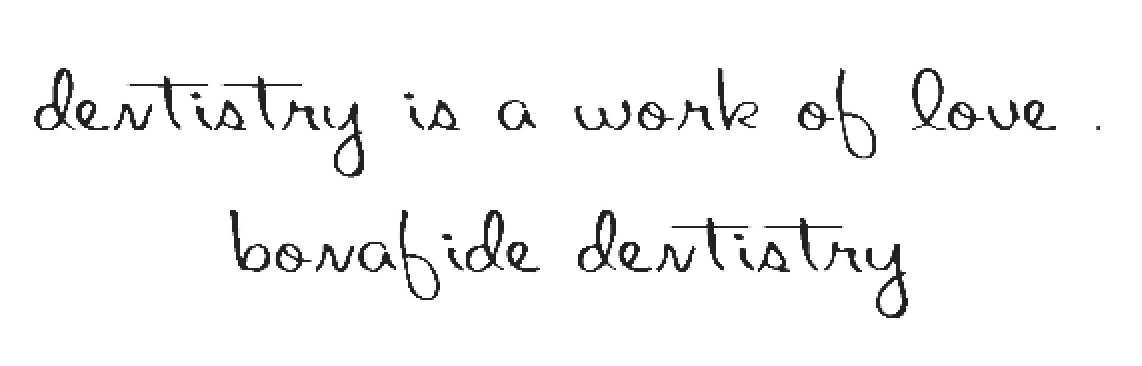 dentistry is a work of love .
bonafide dentistry